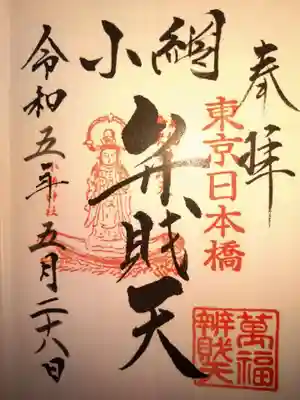 奉拝
東京日本橋
萬福
辨財天
小網
弁財天
令和五年五月二十八日